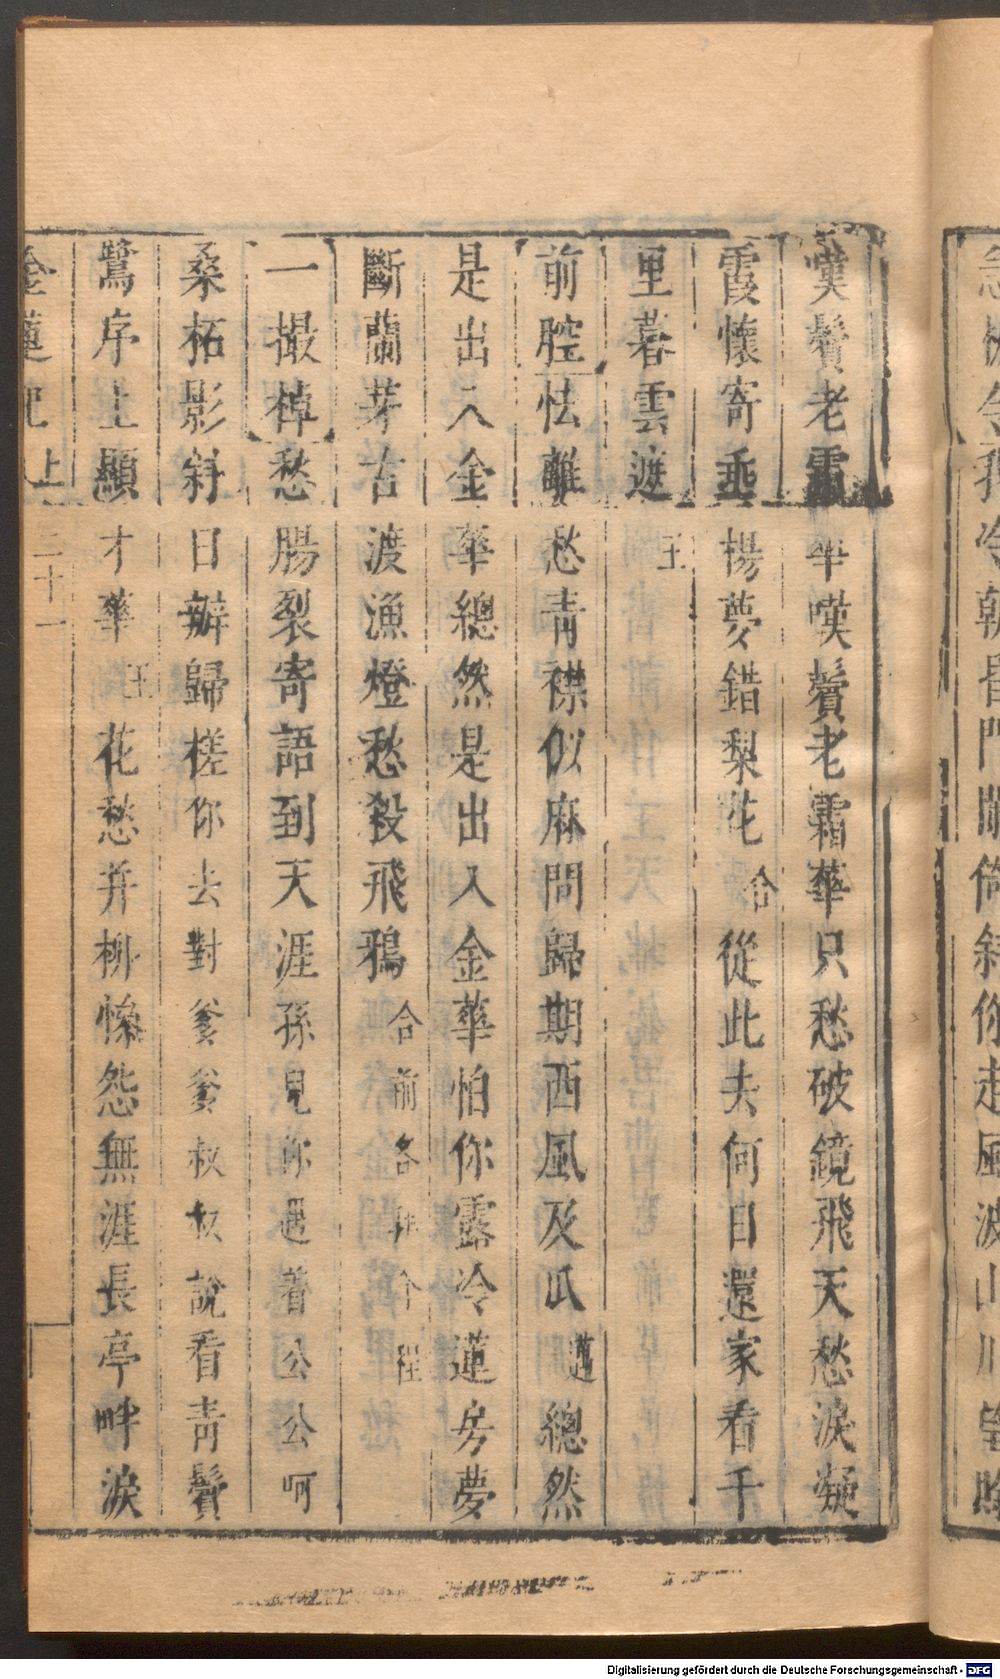 嘆鬢老霜華嘆鬢老霜華只愁破鏡飛天愁淚凝
霞懷寄垂楊夢錯梨花合從此去何日還家看千
里暮雲遮王
前腔怯離愁青襟似麻問歸期西風及瓜邁總然
是出入金華總然是出入金華怕你露冷蓮房夢
斷蘭芽古渡漁燈愁殺飛鴉合前各
一撮棹愁腸裂寄語到天涯孫見你遇着公公呵
桑柘影斜日辦歸槎你去對爹爹叔叔說看青鬢
鷺序上顯才華王花愁并柳慘怨無涯長亭畔淚
金蓮記
上
二十一
Digitalisierung gefördert durch die Deutsche Forschungsgemeinschaft - DFG